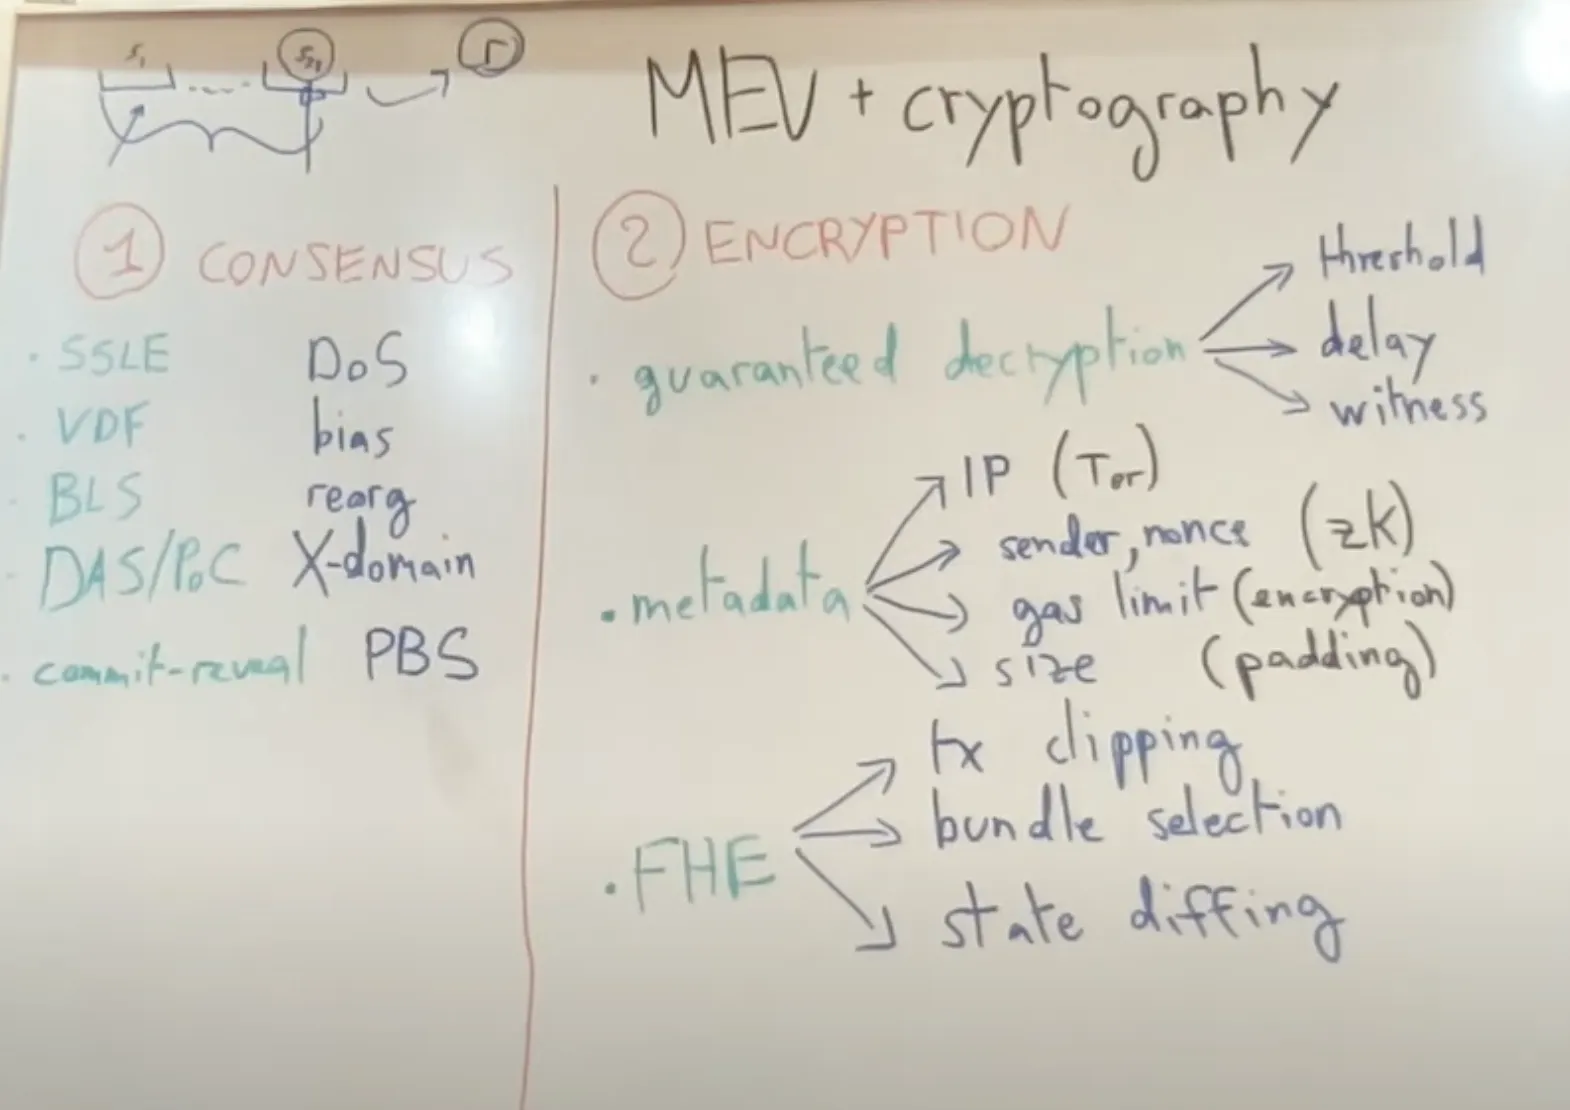 S₁ S₃₂ r
MEV + cryptography
1 CONSENSUS
· SSLE DoS
· VDF bias
· BLS reorg
· DAS/PoC X-domain
· commit-reveal PBS
2 ENCRYPTION
· guaranteed decryption
threshold
delay
witness
· metadata
IP (Tor)
sender, nonce (zk)
gas limit (encryption)
size (padding)
· FHE
tx clipping
bundle selection
state diffing